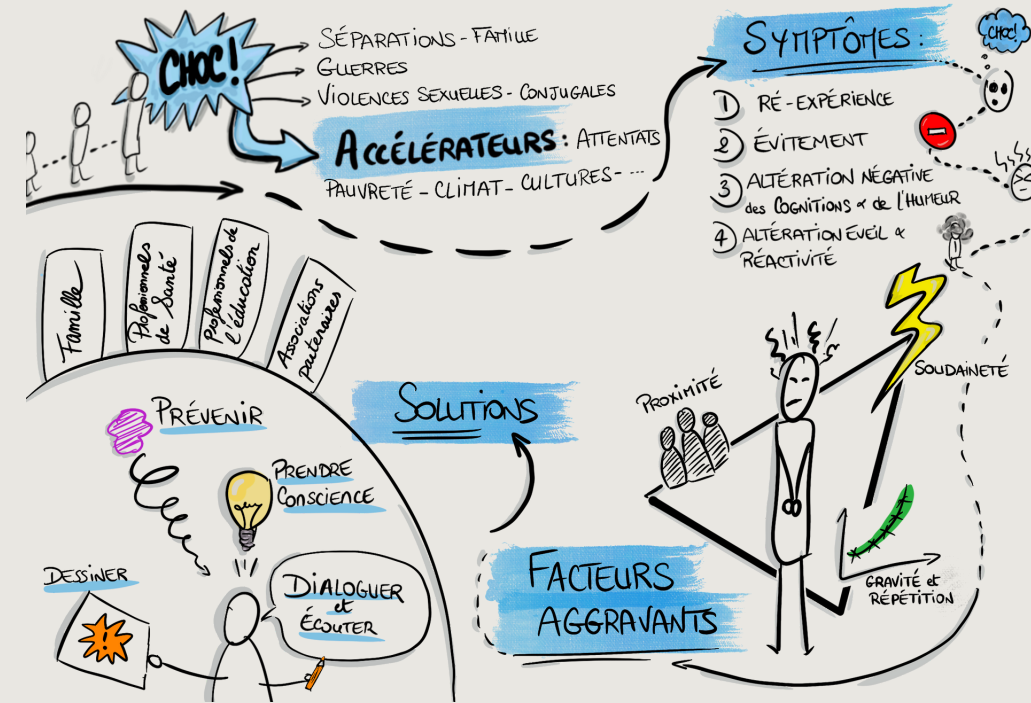 CHOC!
SÉPARATIONS - FAMILLE
GUERRES
VIOLENCES SEXUELLES - CONJUGALES
ACCÉLÉRATEURS : ATTENTATS
PAUVRETÉ - CLIMAT - CULTURES - ...
SYMPTÔMES :
CHOC!
1 RÉ-EXPÉRIENCE
2 ÉVITEMENT
3 ALTÉRATION NÉGATIVE
des COGNITIONS & de l'HUMEUR
4 ALTÉRATION ÉVEIL &
RÉACTIVITÉ
Famille
Professionnels
de Santé
Professionnels de
l'éducation
Associations
partenaires
PRÉVENIR
PRENDRE
CONSCIENCE
DESSINER
!
DIALOGUER
et
ÉCOUTER
SOLUTIONS
PROXIMITÉ
SOUDAINETÉ
GRAVITÉ et
RÉPÉTITION
FACTEURS
AGGRAVANTS